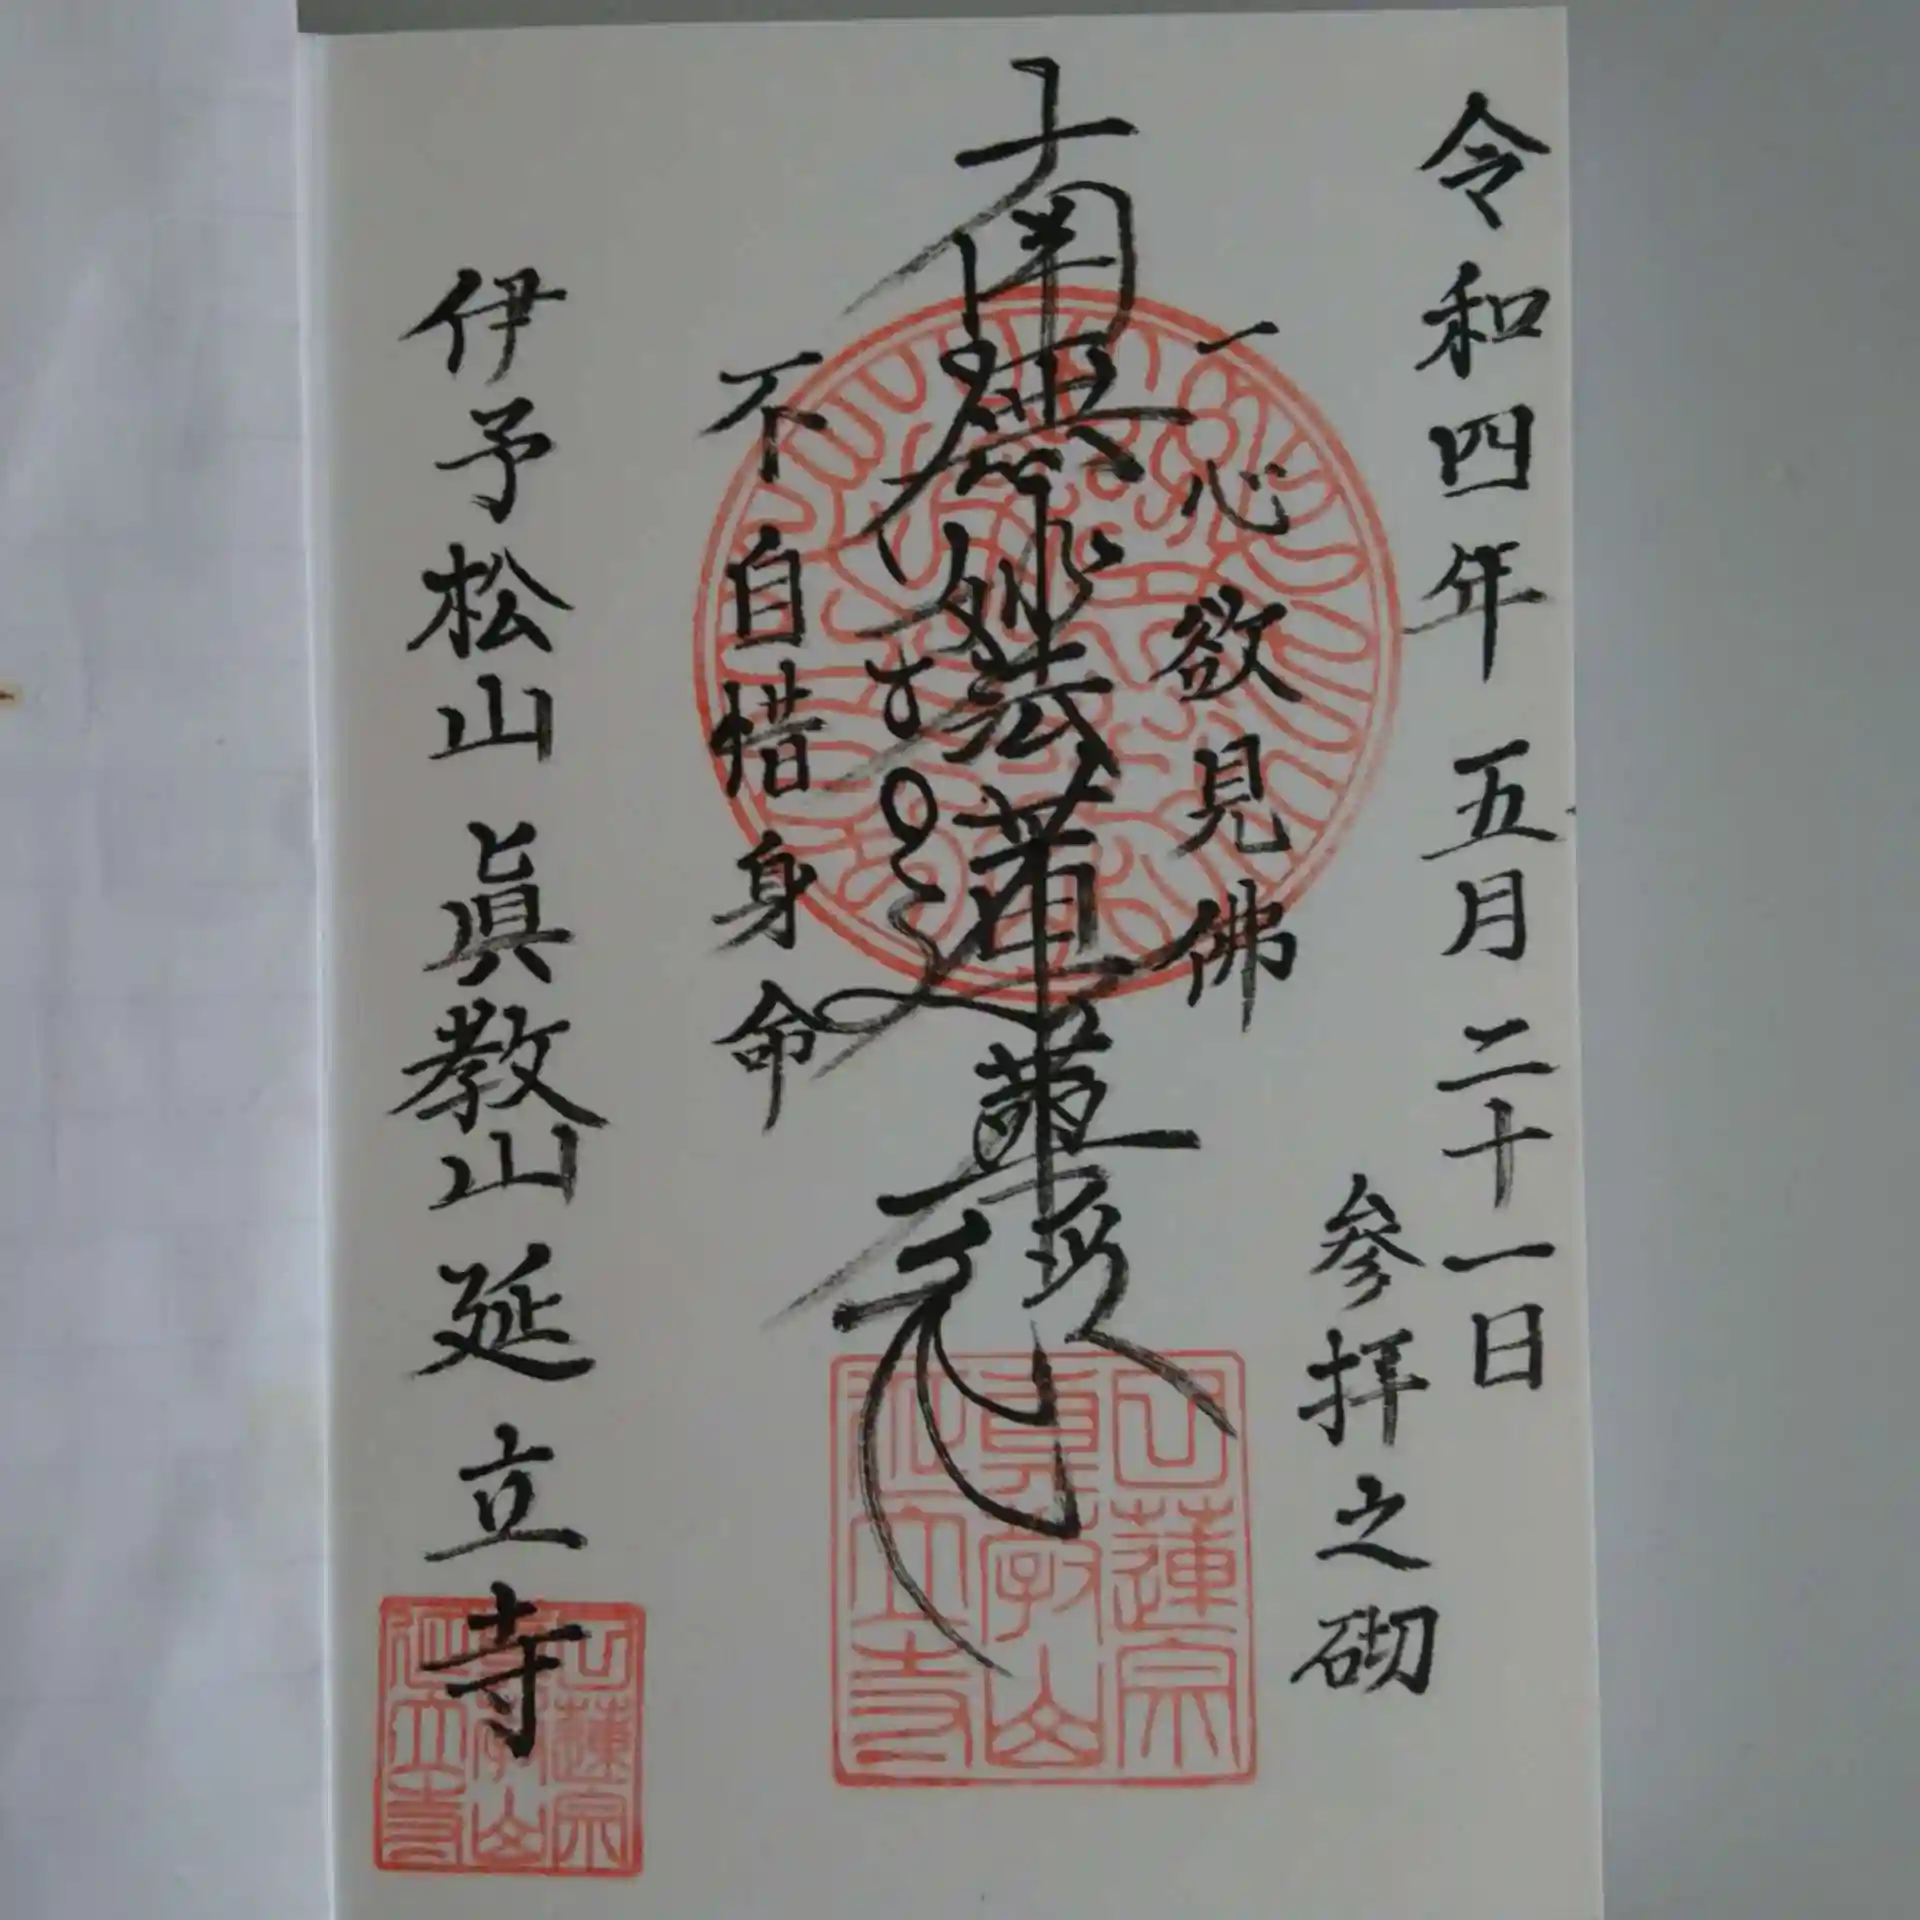 令和四年 五月 二十一日
參拝之砌
一心欲見佛
南無妙法蓮華経
不自惜身命
伊予松山 眞教山 延立寺
山蓮宗
真教山
延立寺
山蓮宗
真教山
延立寺